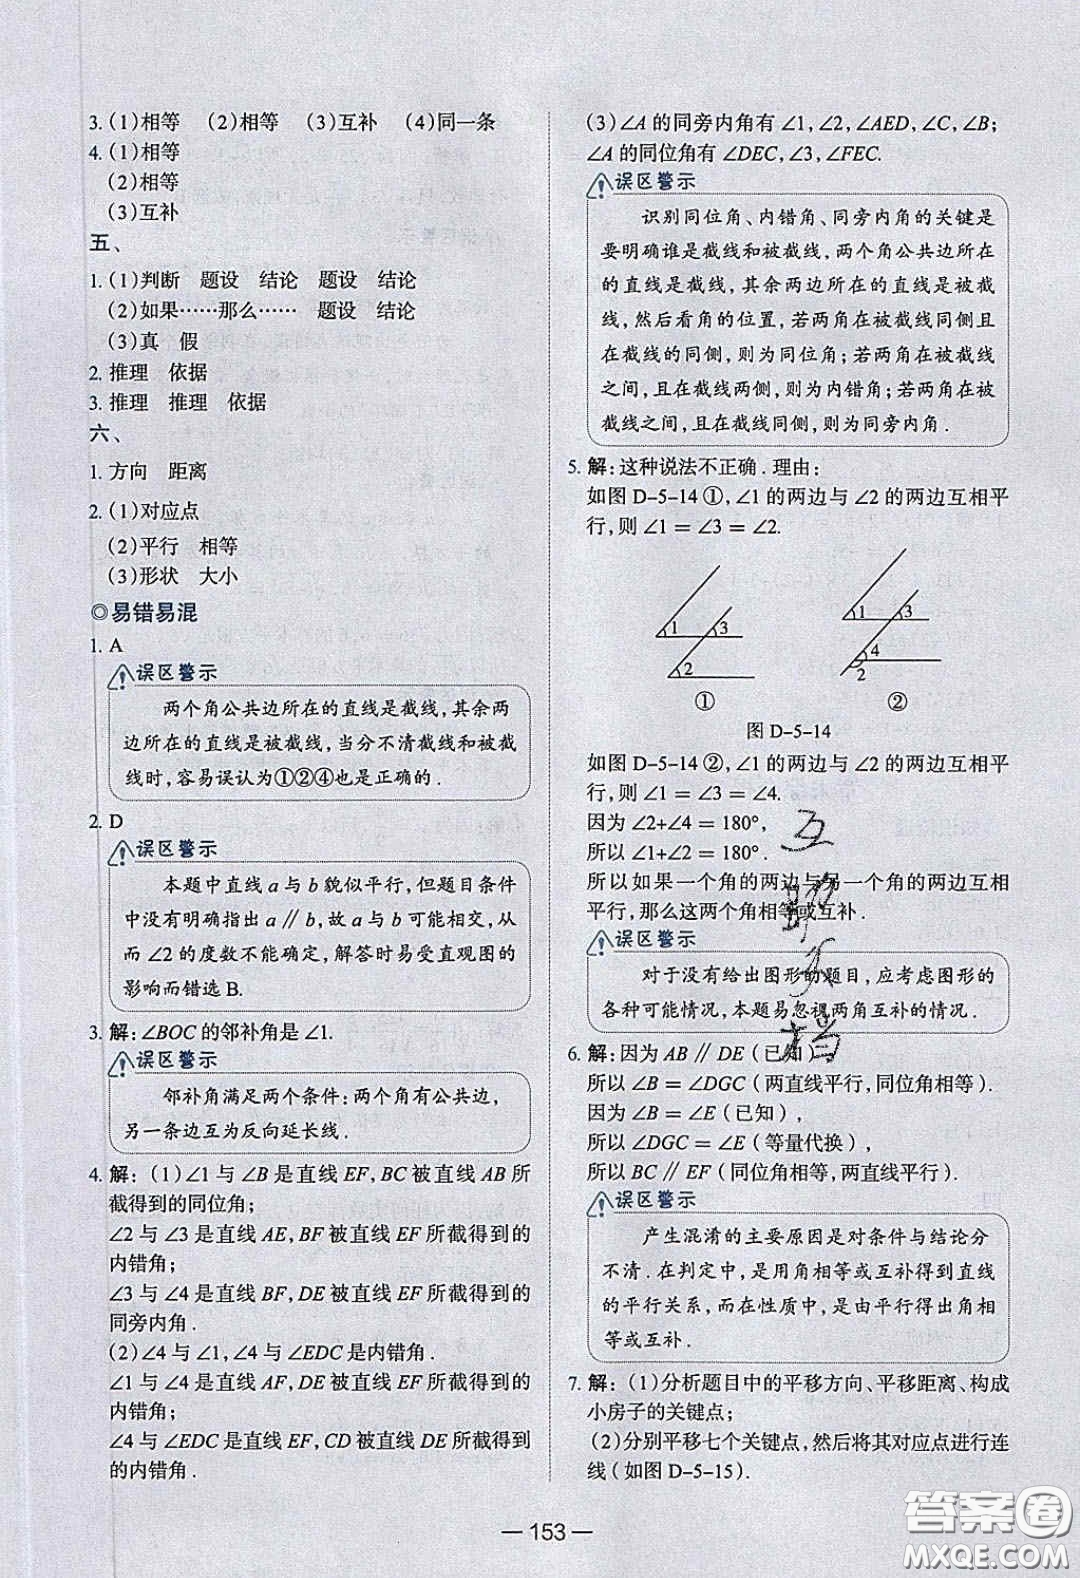 3. (1)相等 (2)相等 (3)互补 (4)同一条
4. (1)相等
(2)相等
(3)互补
五、
1. (1)判断 题设 结论 题设 结论
(2)如果……那么…… 题设 结论
(3)真 假
2. 推理 依据
3. 推理 推理 依据
六、
1. 方向 距离
2. (1)对应点
(2)平行 相等
(3)形状 大小
◎易错易混
1. A
误区警示
两个角公共边所在的直线是截线,其余两
边所在的直线是被截线,当分不清截线和被截
线时,容易误认为①②④也是正确的.
2. D
误区警示
本题中直线 a 与 b 貌似平行,但题目条件
中没有明确指出 a∥b,故 a 与 b 可能相交,从
而∠2 的度数不能确定,解答时易受直观图的
影响而错选 B.
3. 解:∠BOC 的邻补角是∠1.
误区警示
邻补角满足两个条件:两个角有公共边,
另一条边互为反向延长线.
4. 解:(1)∠1 与∠B 是直线 EF,BC 被直线 AB 所
截得到的同位角;
∠2 与∠3 是直线 AE,BF 被直线 EF 所截得到的
内错角;
∠3 与∠4 是直线 BF,DE 被直线 EF 所截得到的
同旁内角.
(2)∠4 与∠1,∠4 与∠EDC 是内错角.
∠1 与∠4 是直线 AF,DE 被直线 EF 所截得到的
内错角.
∠4 与∠EDC 是直线 EF,CD 被直线 DE 所截得到
的内错角.
(3)∠A 的同旁内角有∠1,∠2,∠AED,∠C,∠B;
∠A 的同位角有∠DEC,∠3,∠FEC.
误区警示
识别同位角、内错角、同旁内角的关键是
要明确谁是截线和被截线,两个角公共边所在
的直线是截线,其余两边所在的直线是被截
线,然后看角的位置,若两角在被截线同侧且
在截线的同侧,则为同位角;若两角在被截线
之间,且在截线两侧,则为内错角;若两角在被
截线之间,且在截线同侧,则为同旁内角.
5. 解:这种说法不正确.理由:
如图 D-5-14 ①,∠1 的两边与∠2 的两边互相平
行,则∠1＝∠3＝∠2.
1 3
2
①
1 3
4
2
②
图 D-5-14
如图 D-5-14 ②,∠1 的两边与∠2 的两边互相平
行,则∠1＝∠3＝∠4.
因为∠2+∠4＝180°,
所以∠1+∠2＝180°.
所以如果一个角的两边与另一个角的两边互相
平行,那么这两个角相等或互补.
误区警示
对于没有给出图形的题目,应考虑图形的
各种可能情况,本题易忽视两角互补的情况.
6. 解:因为 AB∥DE(已知),
所以∠B＝∠DGC(两直线平行,同位角相等).
因为∠B＝∠E(已知),
所以∠DGC＝∠E(等量代换),
所以 BC∥EF(同位角相等,两直线平行).
误区警示
产生混淆的主要原因是对条件与结论分
不清.在判定中,是用角相等或互补得到直线
的平行关系,而在性质中,是由平行得出角相
等或互补.
7. 解:(1)分析题目中的平移方向、平移距离、构成
小房子的关键点;
(2)分别平移七个关键点,然后将其对应点进行连
线(如图 D-5-15).
— 153 —
答案圈
MXQE.COM